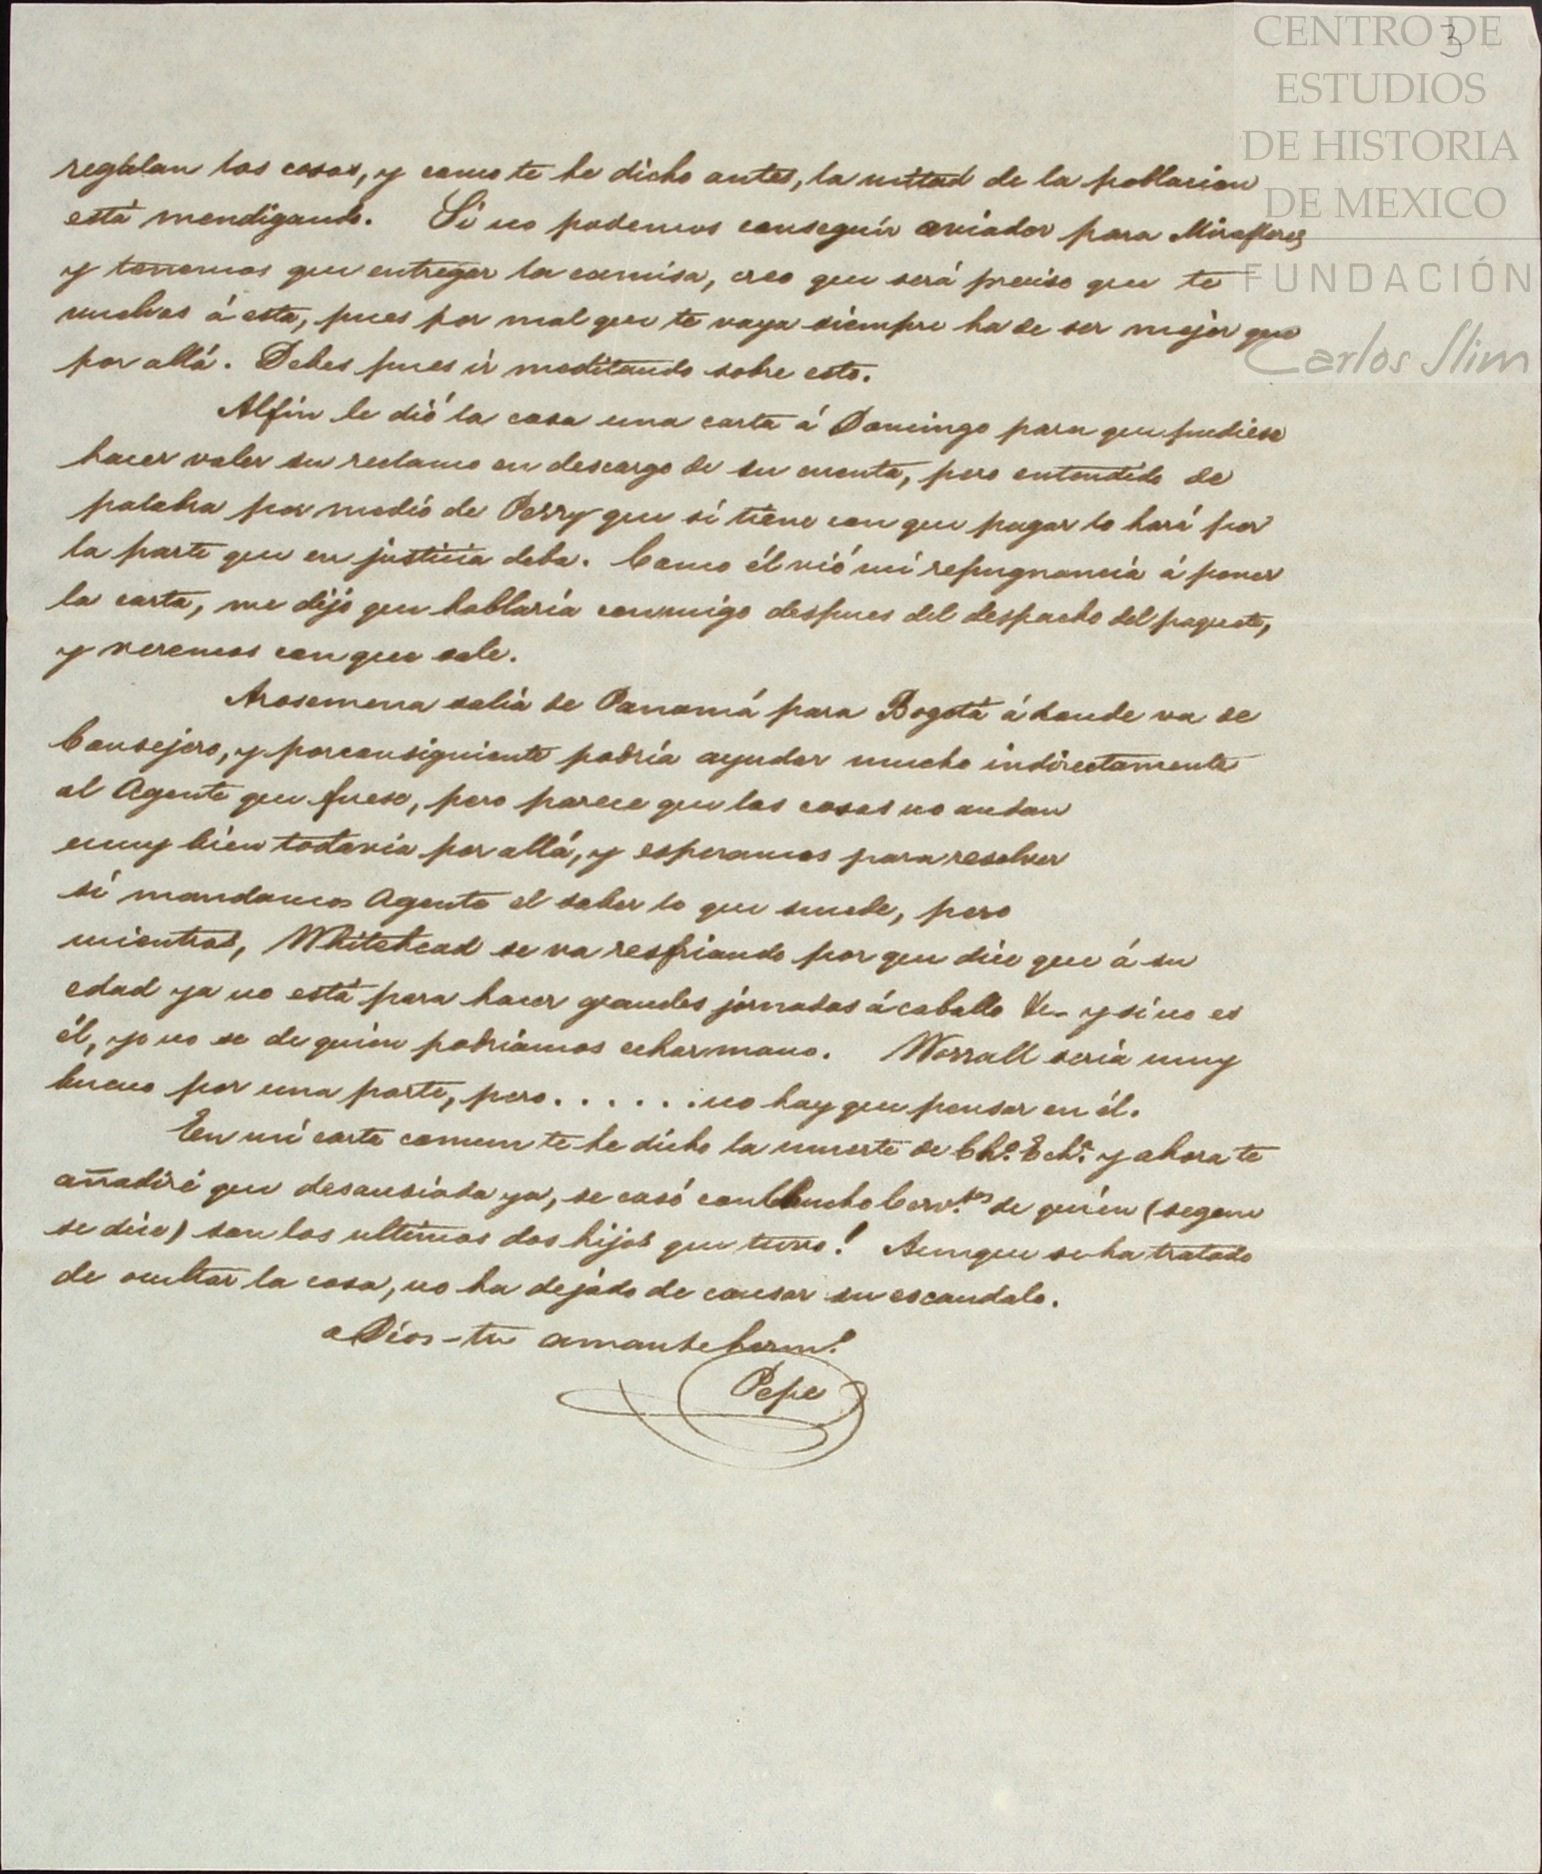 CENTRO DE
ESTUDIOS
DE HISTORIA
DE MEXICO
FUNDACIÓN
Carlos Slim
3
regalan las casas, y como te he dicho antes, la mitad de la poblacion
está mendigando. Si no podemos conseguir aviador para Miraflores
y tenemos que entregar la camisa, creo que será preciso que te
vuelvas á esta, pues por mal que te vaya siempre ha de ser mejor que
por allá. Debes pues ir meditando sobre esto.
Alfin le dió la casa una carta á Domingo para que pudiese
hacer valer su reclamo en descargo de su cuenta, pero entendido de
palabra por medio de Perry que si tiene con que pagar lo hará por
la parte que en justicia deba. Como él vió mi repugnancia á poner
la carta, me dijo que hablaría conmigo despues del despacho del paquete,
y veremos con que sale.
Arosemena salia de Panamá para Bogotá á donde va de
Consejero, y porconsiguiente podria ayudar mucho indirectamente
al Agente que fuese, pero parece que las cosas no andan
muy bien todavia por allá, y esperamos para resolver
si mandamos Agente el saber lo que sucede, pero
mientras, Whitehead se va resfriando por que dice que á su
edad ya no está para hacer grandes jornadas á caballo &c. y si no es
él, yo no se de quién podriamos echar mano. Worrall seria muy
bueno por una parte, pero . . . . . . no hay que pensar en él.
En mi carta comun te he dicho la muerte de Ch.ª Ech.ª y ahora te
añadiré que desausiada ya, se casó con Chucho Cerv.tes de quién (segun
se dice) son los ultimos dos hijos que tuvo! Aunque se ha tratado
de ocultar la cosa, no ha dejado de causar su escandalo.
a Dios - tu amante herm.º
Pepe